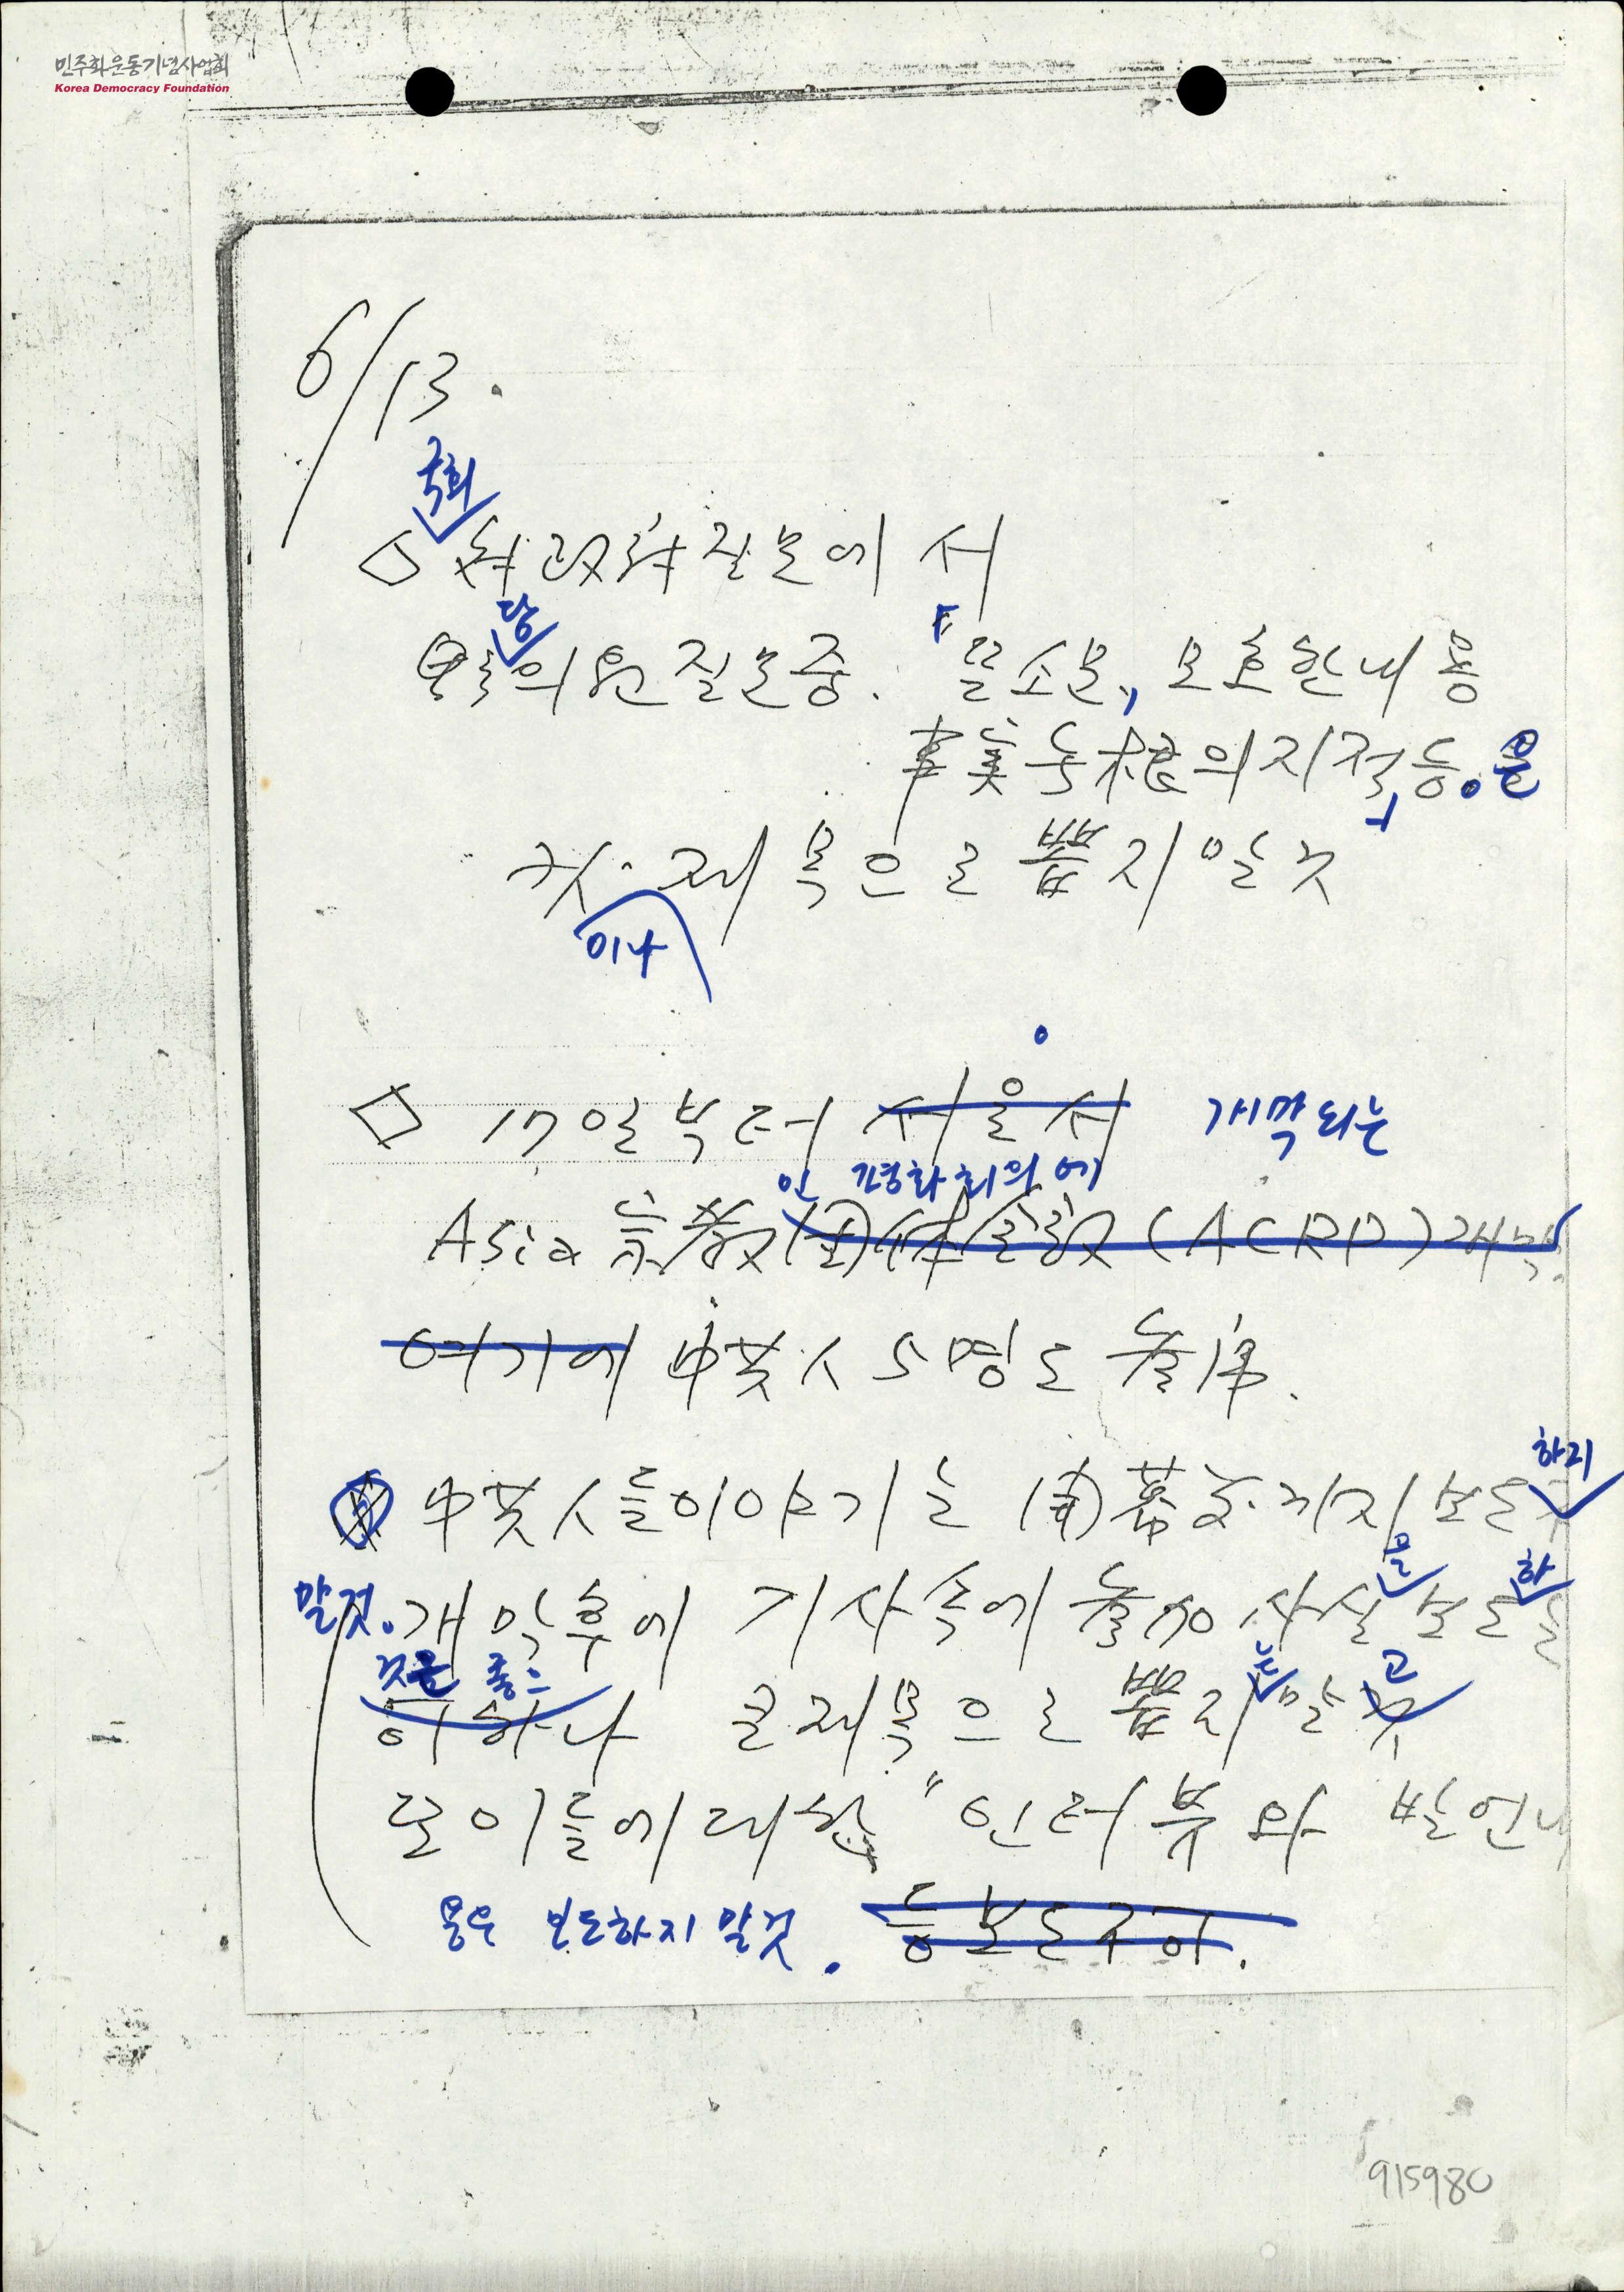 민주화운동기념사업회
Korea Democracy Foundation
6/13.
국회
질문에서
당
의원 질문중. 「 모호한 내용
事実無根의 지적 등. 을
컷. 제목으로 뽑지 말것
이나
◇ 17일부터 서울서 개막되는
인 평화회의에
Asia 宗敎 (ACRP) 개막.
여기에 中共人 5명도 参席.
하지
中共人들 이야기는 開幕 까지 보도
을 하
말것. 개막후에 기사속에 参加 사실 보도
것은 좋으 는 고
허하나 큰제목으로 뽑지 말 것
또 이들에 대한 "인터뷰와 발언내
용은 보도하지 말것. 등 보도 불가.
915980